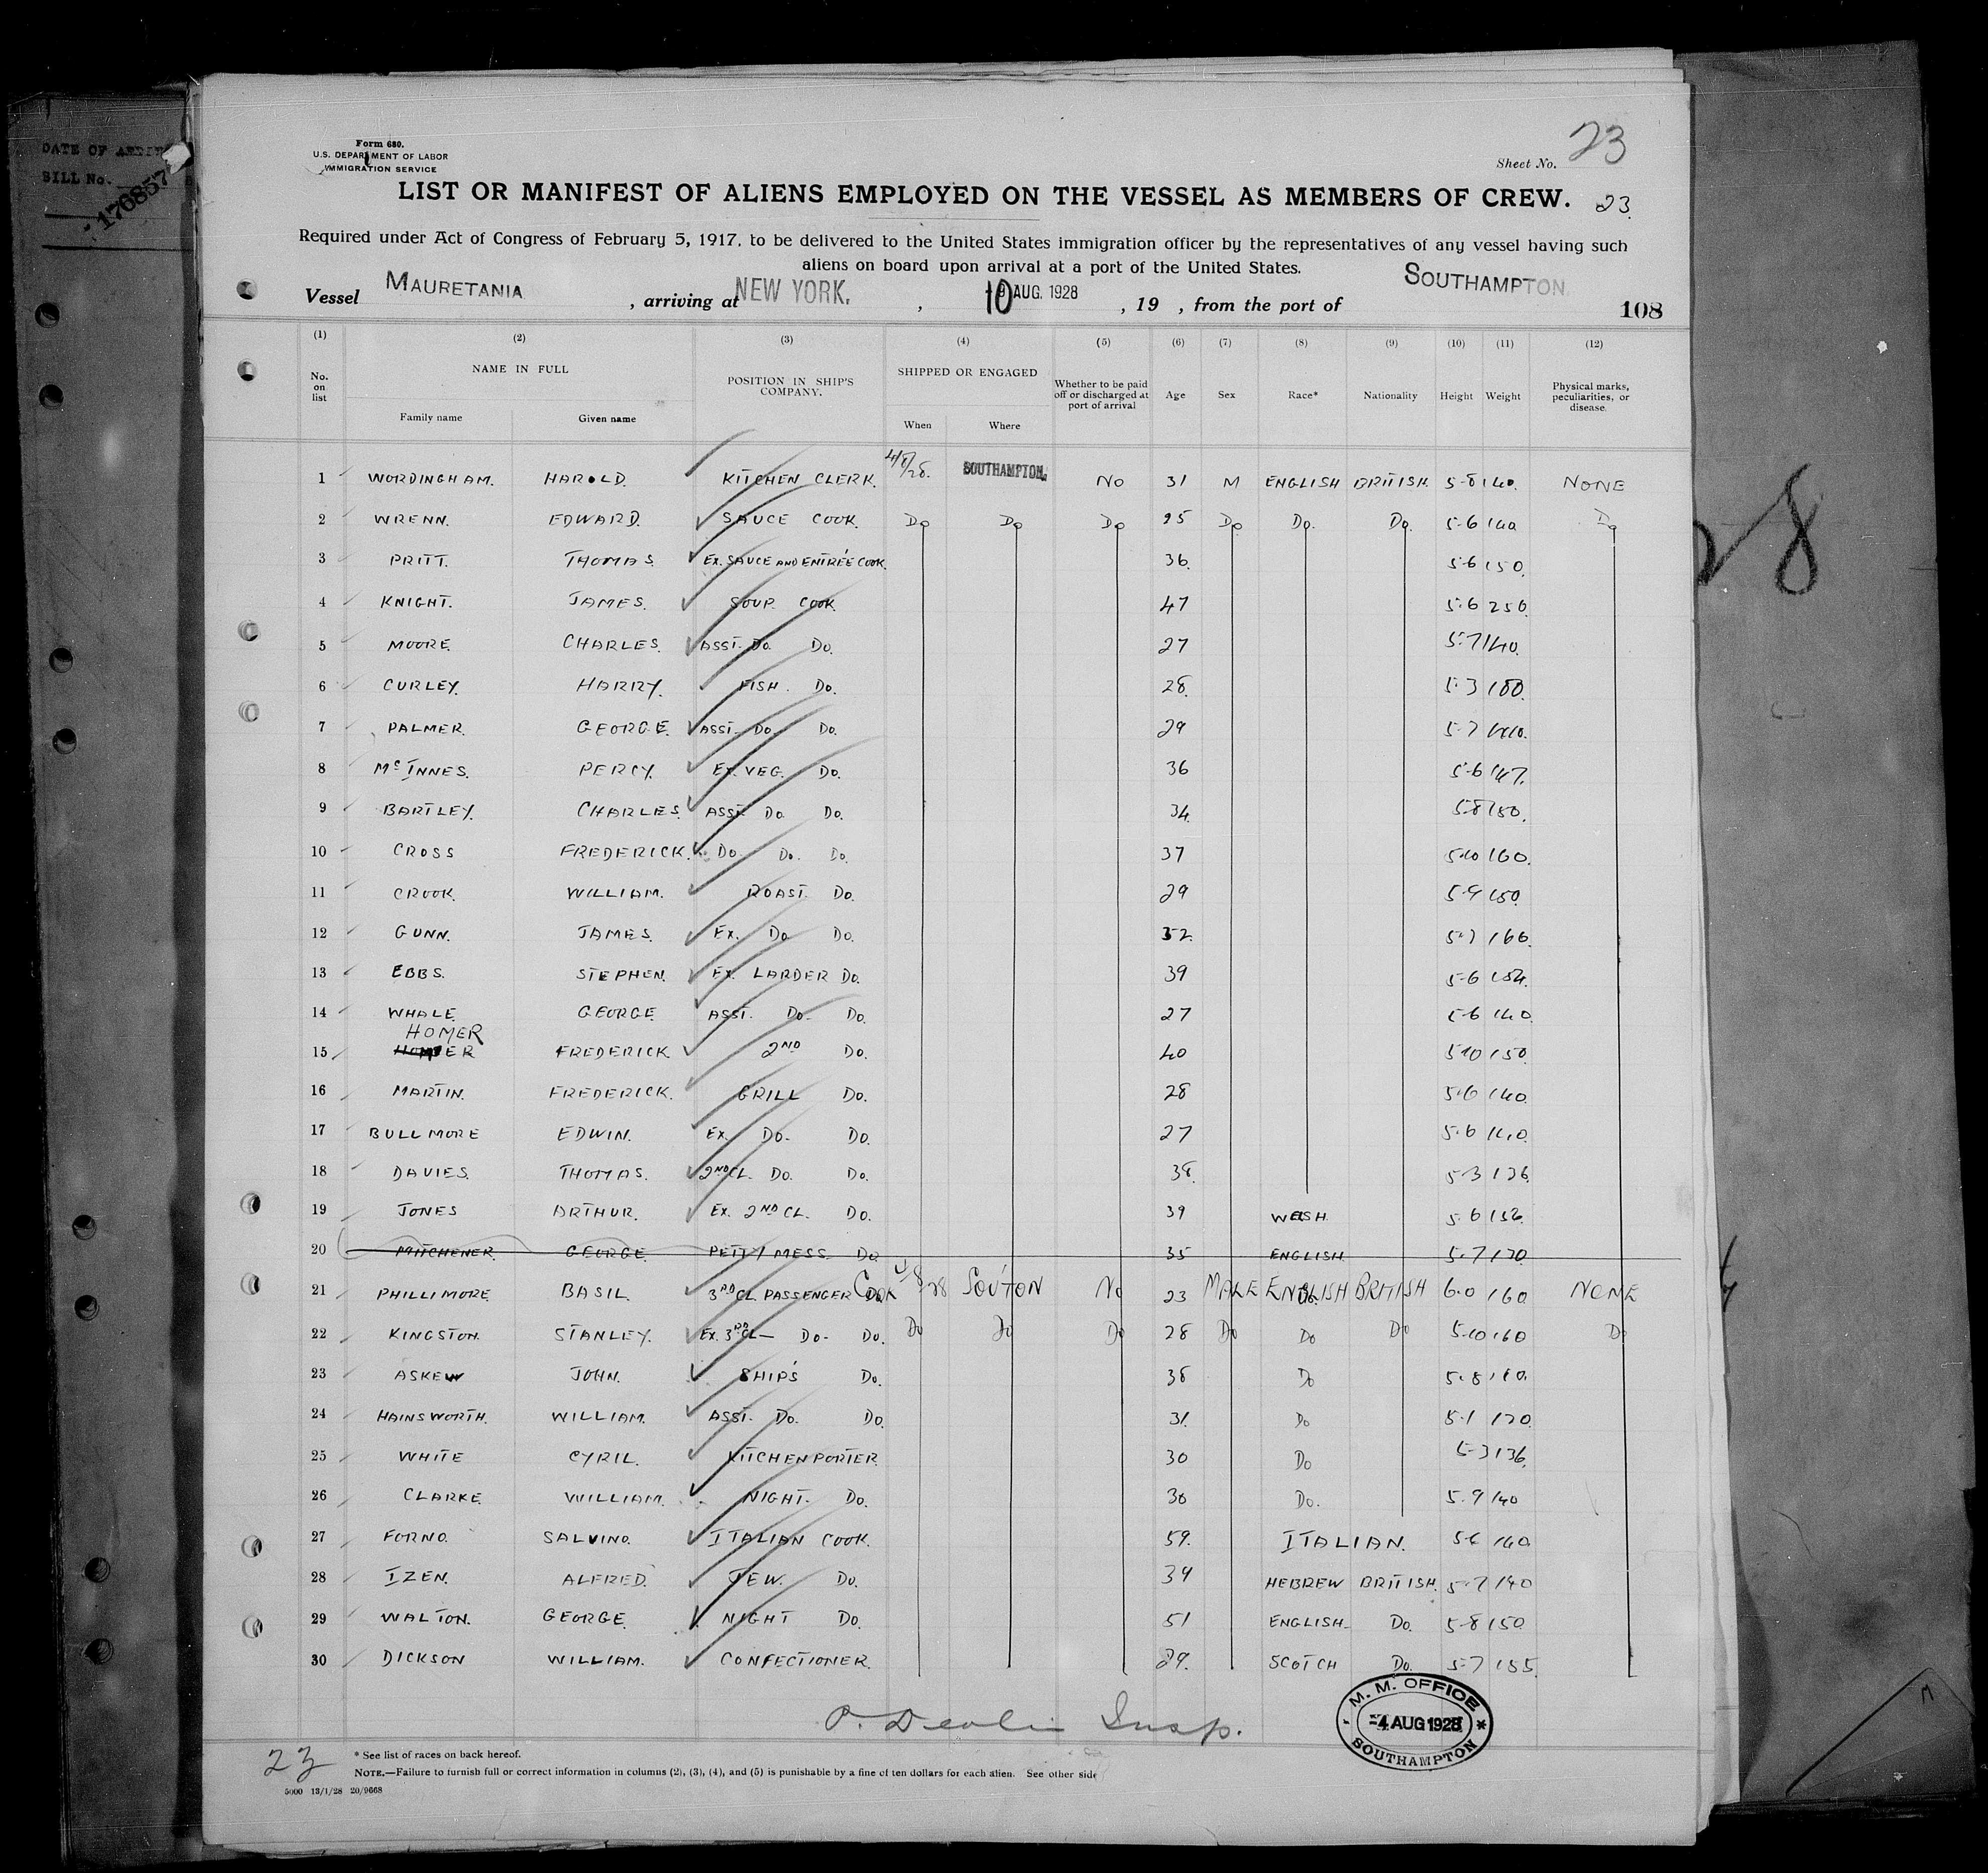 DATE OF
BILL No.
170857
28
Form 680.
U.S. DEPARTMENT OF LABOR
IMMIGRATION SERVICE
Sheet No. 23
LIST OR MANIFEST OF ALIENS EMPLOYED ON THE VESSEL AS MEMBERS OF CREW. 23.
Required under Act of Congress of February 5, 1917, to be delivered to the United States immigration officer by the representatives of any vessel having such
aliens on board upon arrival at a port of the United States.
Vessel MAURETANIA, arriving at NEW YORK., 10 AUG. 1928, 19 , from the port of SOUTHAMPTON
108
(1) (2) (3) (4) (5) (6) (7) (8) (9) (10) (11) (12)
No. on list NAME IN FULL POSITION IN SHIP'S COMPANY. SHIPPED OR ENGAGED Whether to be paid off or discharged at port of arrival Age Sex Race* Nationality Height Weight Physical marks, peculiarities, or disease.
Family name Given name When Where
1 WORDINGHAM. HAROLD. KITCHEN CLERK. 4/8/28. SOUTHAMPTON. NO 31 M ENGLISH BRITISH. 5-8 140. NONE
2 WRENN. EDWARD. SAUCE COOK. Do Do Do 25 Do Do. Do. 5-6 140 Do
3 PRITT. THOMAS. EX. SAUCE AND ENTRÉE COOK. 36. 5-6 150.
4 KNIGHT. JAMES. SOUP COOK 47 5-6 250.
5 MOORE. CHARLES. ASST. Do. Do. 27 5-7 140.
6 CURLEY. HARRY. FISH. Do. 28. 5-3 100.
7 PALMER. GEORGE. ASST. Do. Do. 29 5-7
8 McINNES. PERCY. EX. VEG. Do. 36 5-6 147.
9 BARTLEY. CHARLES. ASST. Do Do. 34. 5-8 150.
10 CROSS FREDERICK. Do. Do. Do. 37 5-10 160.
11 CROOK. WILLIAM. ROAST. Do. 29 5-9 150.
12 GUNN. JAMES. EX. Do Do. 52. 5-7 160.
13 EBBS. STEPHEN. EX. LARDER Do. 39 5-6 154.
14 WHALE. GEORGE ASST. Do. Do. 27 5-6 140.
HOMER
15 FREDERICK. 2ND Do. 40 5-10 150
16 MARTIN. FREDERICK. GRILL Do. 28 5-6 140.
17 BULLMORE EDWIN. EX. Do. Do. 27 5-6 140.
18 DAVIES. THOMAS. 2ND CL. Do. Do. 38. 5-3 136.
19 JONES ARTHUR. EX. 2ND CL. Do. 39 WELSH. 5-6 156.
20 MITCHENER. GEORGE PETTY MESS Do 35 ENGLISH 5-7 170
21 PHILLIMORE. BASIL. 3RD CL. PASSENGER COOK 4/8/28 SOUTON No 23 MALE ENGLISH BRITISH 6-0 160 NONE
22 KINGSTON. STANLEY. EX. 3RD CL— Do- Do. Do Do Do 28 Do Do Do 5-10 160 Do
23 ASKEW JOHN. SHIPS Do. 38 Do 5-8
24 HAINSWORTH. WILLIAM. ASST. Do. Do. 31. Do 5-1 120.
25 WHITE CYRIL. KITCHEN PORTER. 30 Do 5-3 136.
26 CLARKE. WILLIAM. NIGHT. Do. 30 Do. 5-9 140
27 FORNO. SALVINO. ITALIAN COOK. 59. ITALIAN. 5-6 160
28 IZEN. ALFRED. JEW. Do. 39 HEBREW BRITISH. 5-7 140
29 WALTON. GEORGE. NIGHT Do. 51 ENGLISH. Do. 5-8 150
30 DICKSON WILLIAM. CONFECTIONER. 29. SCOTCH Do. 5-7 155
P. Devlin Insp.
M. M. OFFICE
-4 AUG 1928
SOUTHAMPTON
23
* See list of races on back hereof.
NOTE.—Failure to furnish full or correct information in columns (2), (3), (4), and (5) is punishable by a fine of ten dollars for each alien. See other side
5000 13/1/28 20/9668